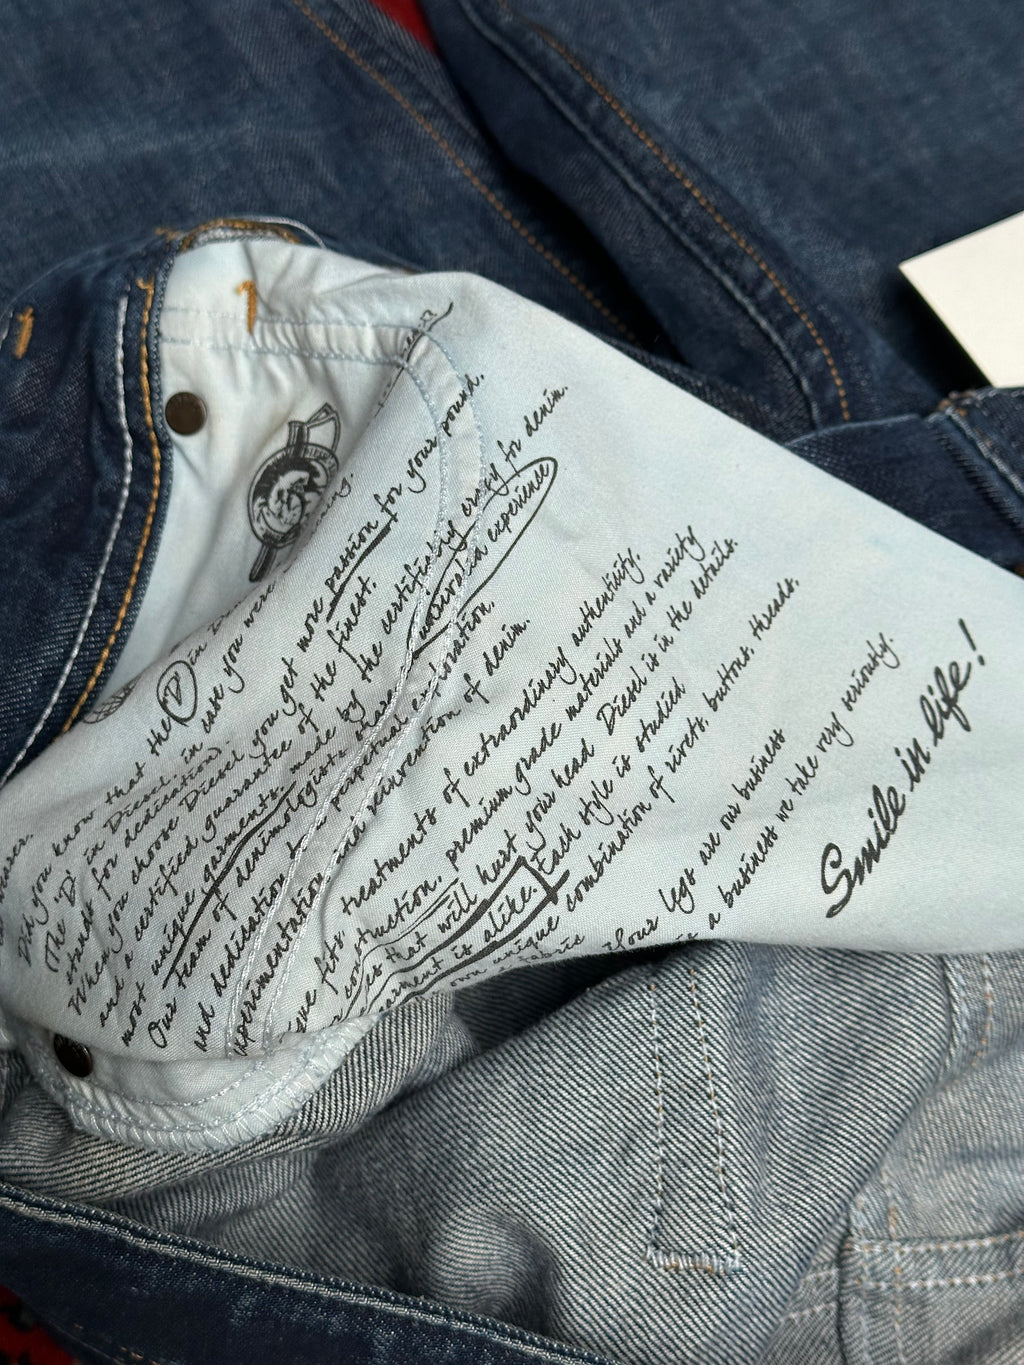 Did you know that the 'D' in
(The 'D' in Diesel, in case you were
stands for dedication).
When you choose Diesel you get more passion for your pound.
and a certified guarantee of the finest,
most unique garments, made by the certifiably crazy for denim.
Our team of denimologists share unrivalled experience
and dedication to perpetual exploration,
experimentation and reinvention of denim.
fits, treatments of extraordinary authenticity,
construction, premium grade materials and a variety
that will hurt your head. Diesel is in the details.
garment is alike. Each style is studied
own unique combination of rivets, buttons, threads,
fabric
Your legs are our business
is a business we take very seriously.
Smile in life!